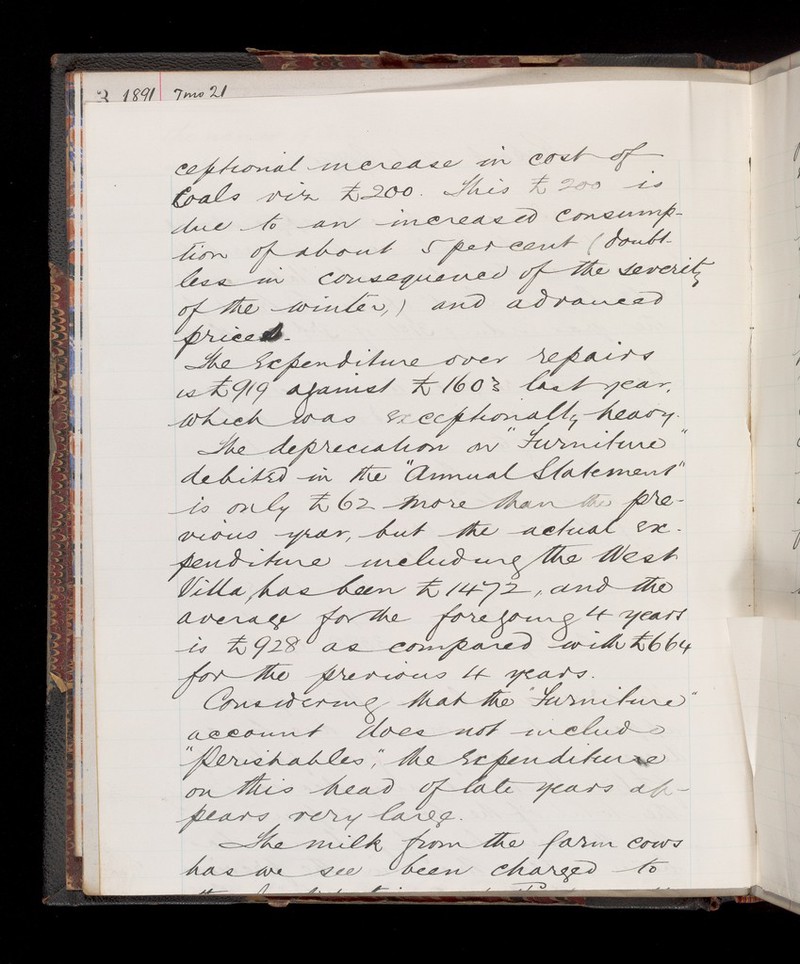 3 1891 7mo 21
ceptional increase in cost of
Coals viz £200. This £200 is
due to an increased consump-
tion of about 5 per cent (doubt-
less in consequence of the severity
of the winter,) and advanced
prices.
The Expenditure over repairs
is £919 against £1603 last year,
which was exceptionally heavy.
The depreciation on "Furniture"
debited in the "Annual Statement"
is only £62 more than the pre-
vious year, but the actual ex-
penditure including the West
Villa, has been £1472, and the
average for the foregoing 4 years
is £928 as compared with £664
for the previous 4 years.
Considering that the "Furniture"
account does not include
"Perishables", the Expenditure
on this head of late years ap-
pears very large.
The milk from the farm cows
has we see been charged to